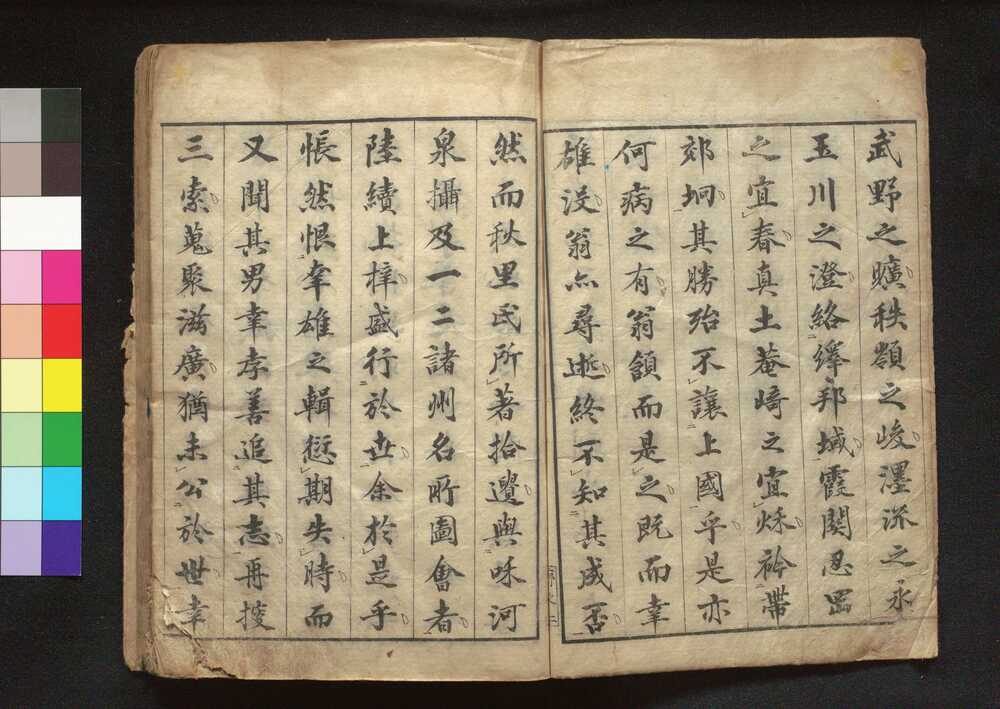 武野之曠秩嶺之峻濹流之永
玉川之澄絡繹邦城霞関忍岡
之宜春真土菴崎之宜秌衿帶
郊坰其勝殆不讓上國乎是亦
何病之有翁頷而是之既而幸
雄没翁亦尋逝終不知其成否
然而秋里氏所著拾遺與咊河
泉攝及一二諸州名所圖會者
陸續上梓盛行於世余於是乎
悵然恨幸雄之輯愆期失時而
又聞其男幸孝善追其志再搜
三索蒐聚滋廣猶未公於世幸